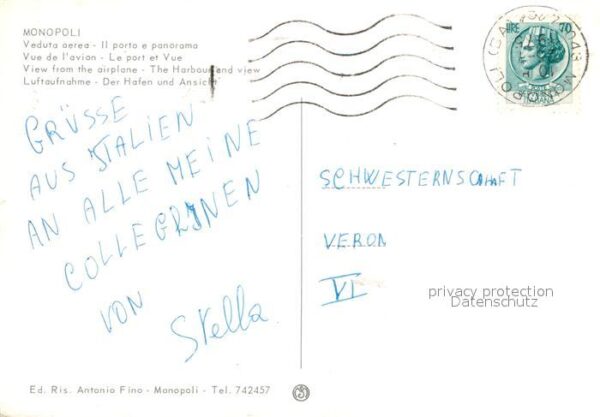 MONOPOLI
Veduta aerea - Il porto e panorama
Vue de l'avion - Le port et Vue
View from the airplane - The Harbour and view
Luftaufnahme - Der Hafen und Ansicht
LIRE 70
70043 MONOPOLI (BA)
GRÜSSE
AUS ITALIEN
AN ALLE MEINE
COLLEGINEN
VON
Stella
SCHWESTERNSCHAFT
VERON
VI
privacy protection
Datenschutz
Ed. Ris. Antonio Fino - Monopoli - Tel. 742457